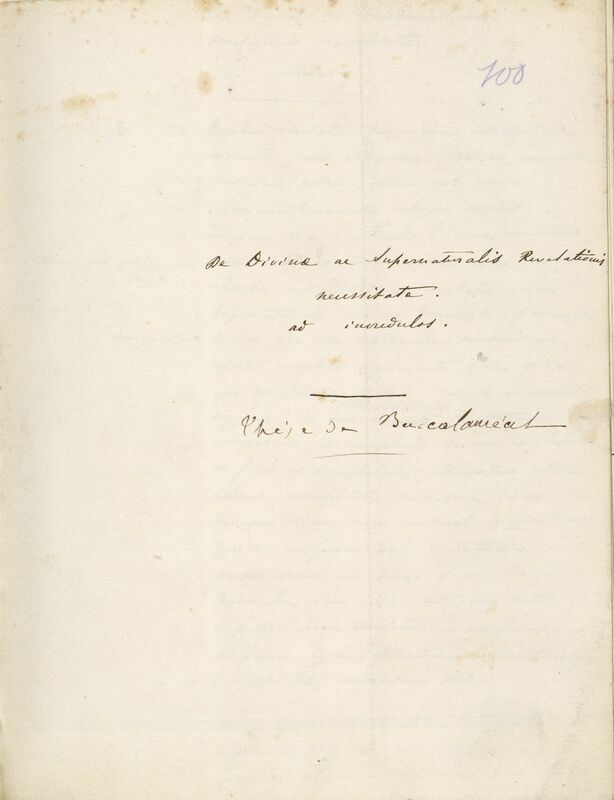 100
De Divinæ ac Supernaturalis Revelationis
necessitate.
ad incredulos.
Thèse de Baccalauréat